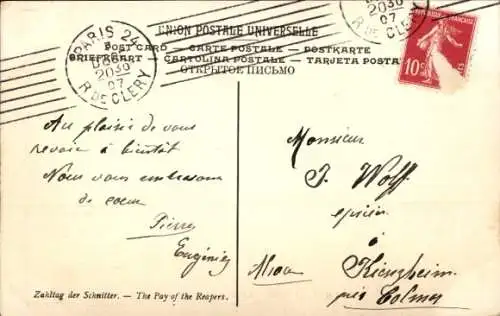 PARIS 24
2030
07
R. DE CLERY
2030
07
DE CLERY
UNION POSTALE UNIVERSELLE
POST CARD — CARTE POSTALE — POSTKARTE
BRIEFKAART — CARTOLINA POSTALE — TARJETA POSTA
ОТКРЫТОЕ ПИСЬМО
10c
Au plaisir de vous
revoir à bientôt
Nous vous embrassons
de coeur
Pierre
Eugénie
Monsieur
J. Wolff
épicier
à
Kienzheim
près Colmar
Zahltag der Schnitter. — The Pay of the Reapers.